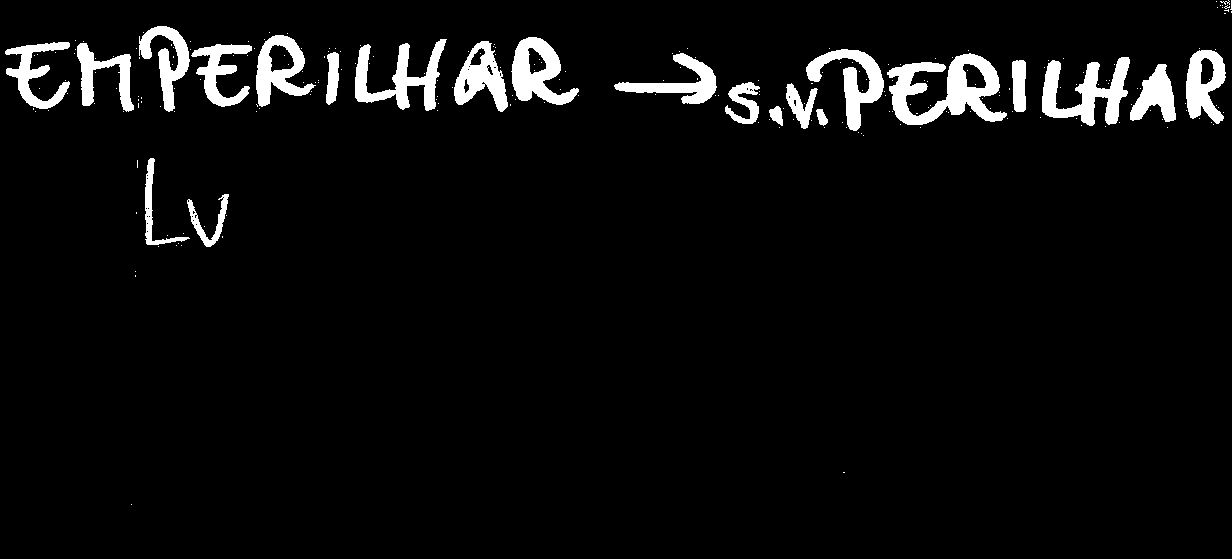 EMPERILHAR → s.v. PERILHAR
Lv